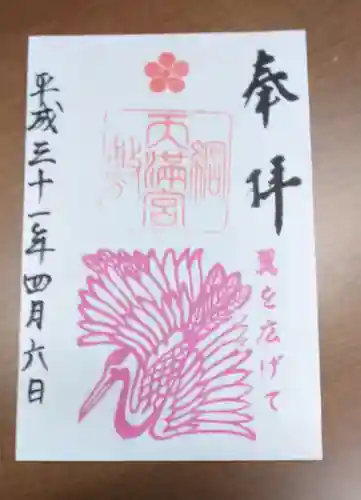 奉拝
綱
天満宮
翼を広げて
平成三十一年四月六日